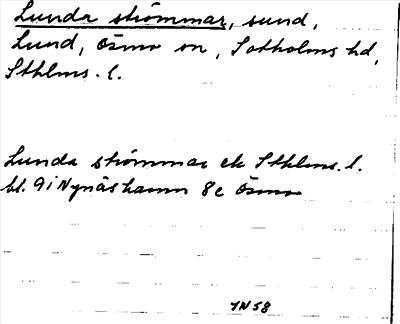 Lunda strömmar, sund,
Lund, Ösmo sn, Sotholms hd,
Sthlms. l.
Lunda strömmar ek Sthlms. l.
bl. 9 i Nynäshamn 8c Ösmo
IN58